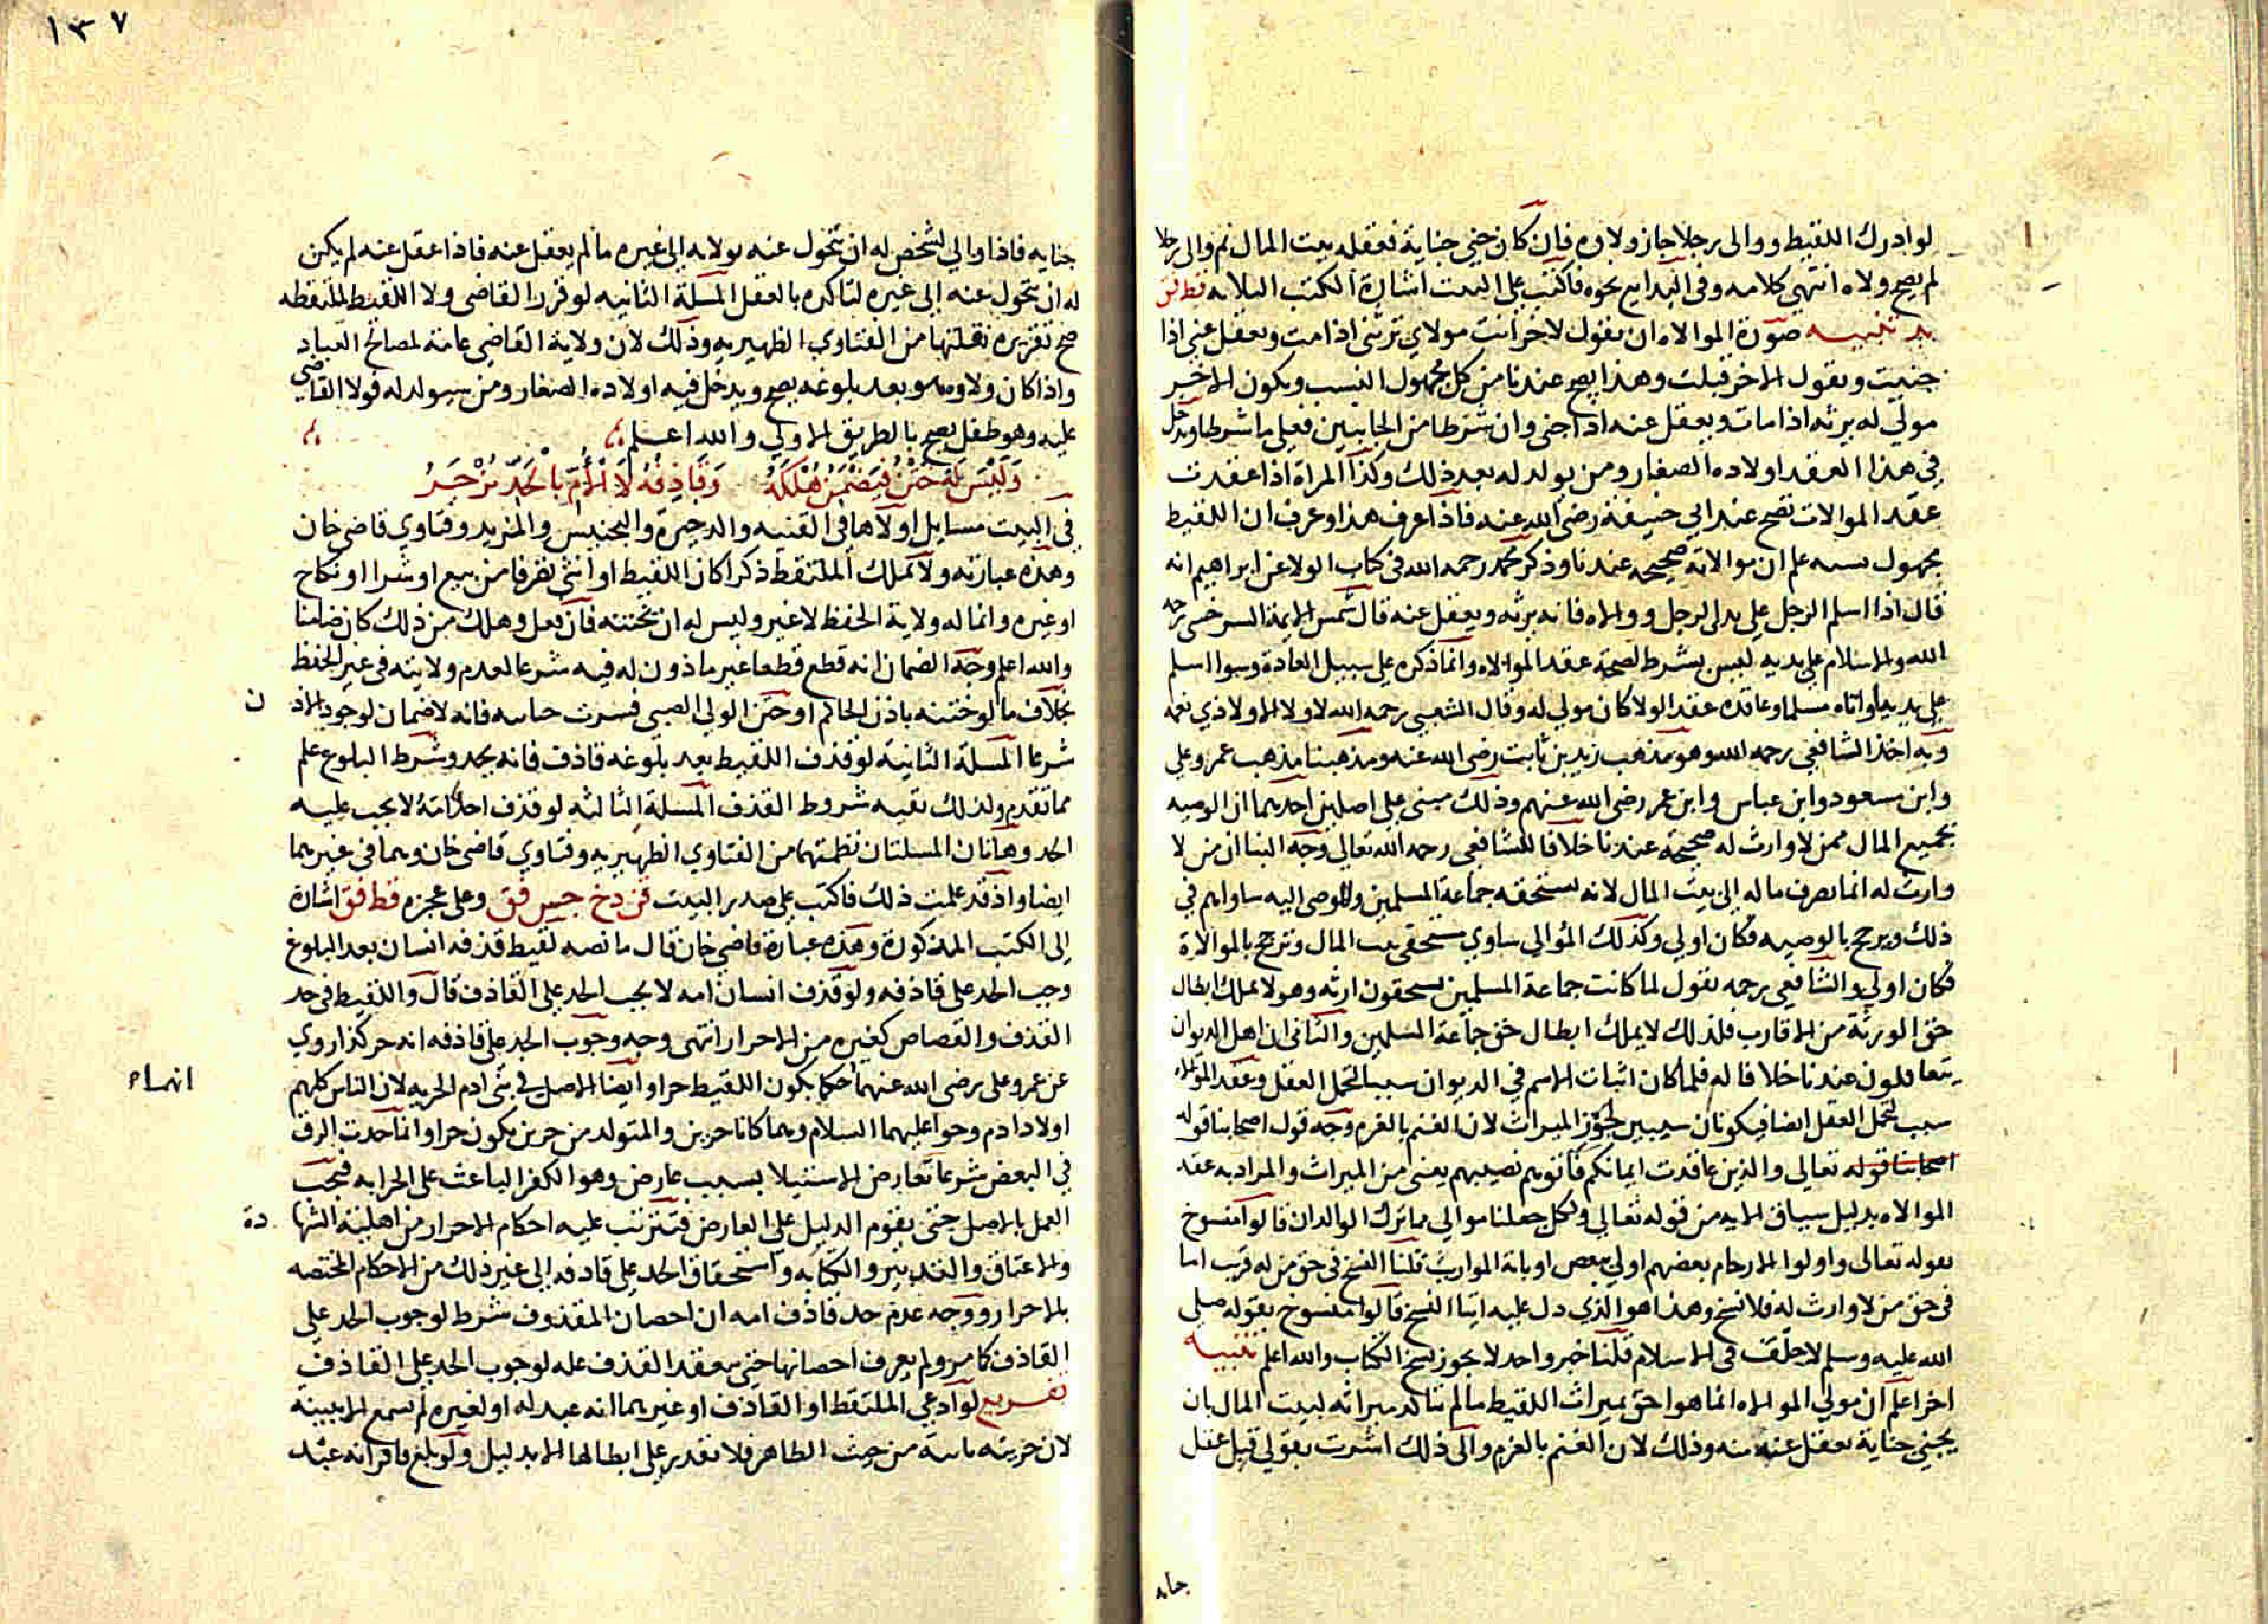 لو ادرك اللقيط ووالى رجلا جاز ولاوه فان كان جني جناية فعقله بيت المال ثم والى رجلا
لم يصح ولاه انتهى كلامه وفي البدايع نحوه فاكتب على البيت اشارة الكتب الثلاثه قط فق
بد تنبيه صورة الموالاه ان يقول لاخر انت مولاي ترثني اذا مت وتعقل عني اذا
جنيت ويقول الاخر قبلت وهذا يصح عندنا من كل مجهول النسب ويكون الاخير
مولى له يرثه اذا مات ويعقل عنه اذا جنى وان شرطا من الجانبين فعلى ما شرطا ويدخل
في هذا العقد اولاده الصغار ومن يولد له بعد ذلك وكذا المراة اذا عقدت
عقد الموالات تصح عند ابي حنيفة رضي الله عنه فاذا عرف هذا وعرف ان اللقيط
مجهول نسبه علم ان موالاته صحيحه عندنا وذكر محمد رحمه الله في كتاب الولا عن ابراهيم انه
قال اذا اسلم الرجل على يدي الرجل ووالاه فانه يرثه ويعقل عنه قال شمس الايمة السرخسي رحمه
الله والاسلام على يديه ليس بشرط لصحة عقد الموالاه وانما ذكره على سبيل العادة وسوا اسلم
على يديه او اتاه مسلما وعاقده عقد الولا كان مولى له وقال الشعبي رحمه الله لا ولا الا ولا ذي نعمه
وبه اخذ الشافعي رحمه الله وهو مذهب زيد بن ثابت رضي الله عنه ومذهبنا مذهب عمر وعلي
وابن مسعود وابن عباس وابن عمر رضي الله عنهم وذلك مبنى على اصلين احدهما ان الوصيه
بجميع المال ممن لا وارث له صحيحة عندنا خلافا للشافعي رحمه الله تعالى وجه البنا ان من لا
وارث له انما يصرف ماله الى بيت المال لانه يستحقه جماعة المسلمين والموصى اليه ساواهم في
ذلك ويرجح بالوصيه فكان اولى وكذلك المؤالي ساوي مستحقي بيت المال وترجح بالموالاة
فكان اولى والشافعي رحمه يقول لما كانت جماعة المسلمين يستحقون ارثه وهو لا يملك ابطال
حق الورثة من الاقارب فلذلك لا يملك ابطال حق جماعة المسلمين والثاني ان اهل الديوان
يتعاقلون عندنا خلافا له فلما كان اثبات الاسم في الديوان سببا لتحمل العقل وعقد الموالاه
سبب لتحمل العقل ايضا فيكونان سببين لحوز الميراث لان الغنم بالغرم وجه قول اصحابنا قوله
اصحابنا قوله تعالى والذين عاقدت ايمانكم فاتوهم نصيبهم يعني من الميراث والمراد به عقد
الموالاه بدليل سياق الايه من قوله تعالى ولكل جعلنا موالي مما ترك الوالدان قالوا منسوخ
بقوله تعالى واولوا الارحام بعضهم اولى ببعض او باية المواريث قلنا النسخ في حق من له قريب اما
في حق من لا وارث له فلا نسخ وهذا هو الذي دل عليه ايتا النسخ قالوا منسوخ بقوله صلى
الله عليه وسلم لا حلف في الاسلام قلنا خبر واحد لا يجوز نسخ الكتاب والله اعلم تنبيه
اخر اعلم ان مولي الموالاه انما هو احق بميراث اللقيط ما لم يتاكد ميراثه لبيت المال بان
يجني جناية يعقل عنه منه وذلك لان الغنم بالغرم والى ذلك اشرت بقولي قبل عقل
١٣٧
جنايه فاذا والي لشخص له ان يتحول عنه بولايه الى غيره ما لم يعقل عنه فاذا عقل عنه لم يكن
له ان يتحول عنه الى غيره لتاكده بالعقل المسلة الثانيه لو قرر القاضي ولا اللقيط لملتقطه
صح تقريره نقلتها من الفتاوي الظهيريه وذلك لان ولاية القاضي عامة لمصالح العباد
واذا كان ولاوه هو بعد بلوغه يصح ويدخل فيه اولاده الصغار ومن سيولد له فولا القاضي
عليه وهو طفل يصح بالطريق الاولى والله اعلم
وَلَيْسَ لَهُ خَتْنٌ فَيَضْمَنُ هُلْكَهُ وَقَاذِفُهُ لَا الْأُمَّ بِالْحَدِّ يُزْجَرُ
في البيت مسايل اولاها في القنيه والدخيرة والتجنيس والمزيد وفتاوي قاضي خان
وهذه عبارته ولا يملك الملتقط ذكرا كان اللقيط او انثى تصرفا من بيع او شرا او نكاح
او غيره وانما له ولاية الحفظ لا غير وليس له ان يختنه فان فعل وهلك من ذلك كان ضامنا
والله اعلم وجه الضمان انه قطع قطعا غير ماذون له فيه شرعا لعدم ولايته في غير الحفظ
بخلاف ما لو ختنه باذن الحاكم او ختن الولي الصبي فسرت جنايته فانه لا ضمان لوجود الاذ ن
شرعا المسلة الثانية لو قذف اللقيط بعد بلوغه قاذف فانه يحد وشرط البلوغ علم
مما تقدم ولذلك بقيه شروط القذف المسلة الثالثه لو قذف احد امه لا يجب عليه
الحد وهاتان المسلتان نظمتهما من الفتاوي الظهيريه وفتاوي قاضي خان وهما في غيرهما
ايضا واذ قد علمت ذلك فاكتب على صدر البيت قن دخ جيس فق وعلى عجزه قط فق اشارة
الى الكتب المذكورة وهذه عبارة قاضي خان قال ما نصه لقيط قذفه انسان بعد البلوغ
وجب الحد على قاذفه ولو قذف انسان امه لا يجب الحد على القاذف قال واللقيط في حد
القذف والقصاص كغيره من الاحرار انتهى وجه وجوب الحد على قاذفه انه حر كذا روي
عن عمر وعلى رضى الله عنهما احكما بكون اللقيط حرا وايضا الاصل في بني ادم الحريه لان الناس كلهم
اولاد ادم وحوا عليهما السلام وهما كانا حرين والمتولد من حرين يكون حرا وانما حدث الرق
في البعض شرعا بعارض الاستيلا بسبب عارض وهو الكفر الباعث على الحرابه فيجب
العمل بالاصل حتى يقوم الدليل على العارض فتترتب عليه احكام الاحرار من اهلية الشها دة
والاعتاق والتدبير والكتابه واستحقاق الحد على قاذفه الى غير ذلك من الاحكام المختصه
بالاحرار ووجه عدم حد قاذف امه ان احصان المقذوف شرط لوجوب الحد على
القاذف كما مر ولم يعرف احصانها حتى ينعقد القذف علة لوجوب الحد على القاذف
تفريع لو ادعى الملتقط او القاذف او غيرهما انه عبد له او لغيره لم تسمع الا ببينه
لان حريته ثابتة من حيث الظاهر فلا نقدر على ابطالها الا بدليل ولو بلغ فاقر انه عبد